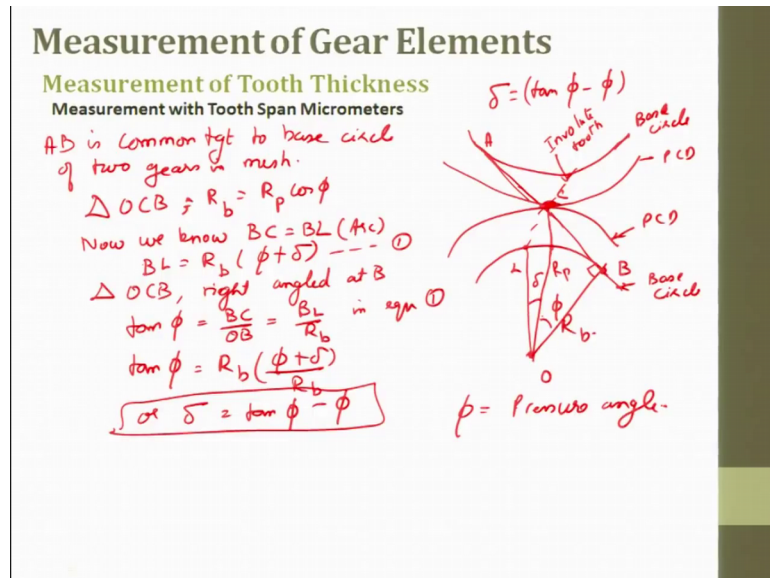 Measurement of Gear Elements
Measurement of Tooth Thickness
Measurement with Tooth Span Micrometers
AB is common tgt to base circle
of two gears in mesh.
△ OCB ; R_b = R_p cos ϕ
Now we know BC = BL (Arc)
BL = R_b (ϕ + δ) ---- ①
△ OCB, right angled at B
tan ϕ = BC/OB = BL/R_b in eqn ①
tan ϕ = R_b (ϕ + δ)/R_b
or δ = tan ϕ - ϕ
δ = (tan ϕ - ϕ)
A
Involute
tooth
Base
circle
PCD
C
PCD
L
δ
R_p
B
Base
circle
ϕ
R_b.
O
ϕ = Pressure angle.